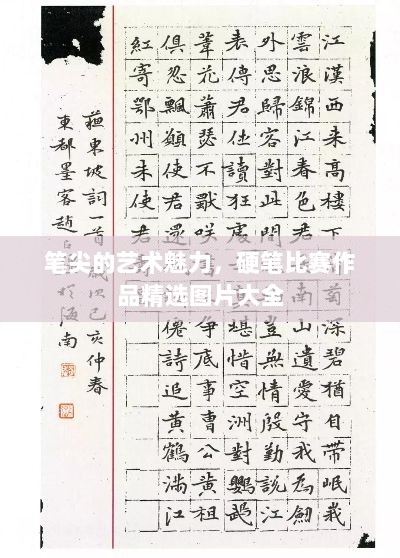 江漢西来高樓下萄深碧猶自帶岷峩
雪浪錦江春色君山遺愛守我為劍
外思歸客對此間豈無情殷勤說江
表傳君休讀狂處堪惜空洲對鸚鵡
葦花蕭瑟不獨咲争底事曹公黃祖
俱忽飄願使君還僊詩追黃鶴滿江
紅寄鄂州朱使君
蘓東坡詞一首歲次己亥仲春
東都墨客趙於海南
笔尖的艺术魅力，硬笔比赛作
品精选图片大全